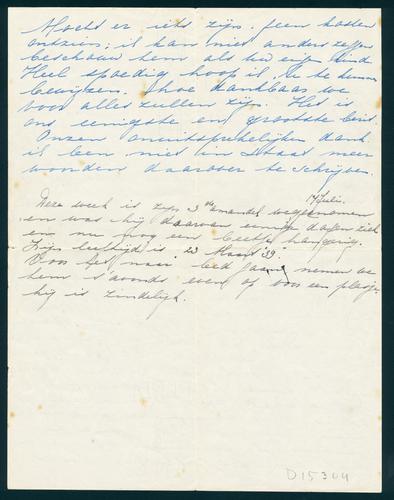 Mocht er iets zijn. geen kosten
ontzien; ik kan niet anders zeggen
beschouw hem als uw eigen kind
Heel spoedig hoop ik U te kunnen
bewijzen. hoe dankbaar we
voor alles zullen zijn. Het is
ons eenigste en grootste bezit.
Onzen onuitsprekelijken dank
ik ben niet in staat meer
woorden daarover te schrijven.
17 Juli.
Deze week is zijn 3de amandel weggenomen
en was hij daarvan eenige dagen ziek
en nu nog een beetje hangerig.
Zijn leeftijd is 23 Maart '39.
Voor het naar bed gaan, nemen we
hem 's avonds even op voor een plasje
hij is zindelijk.
D15304